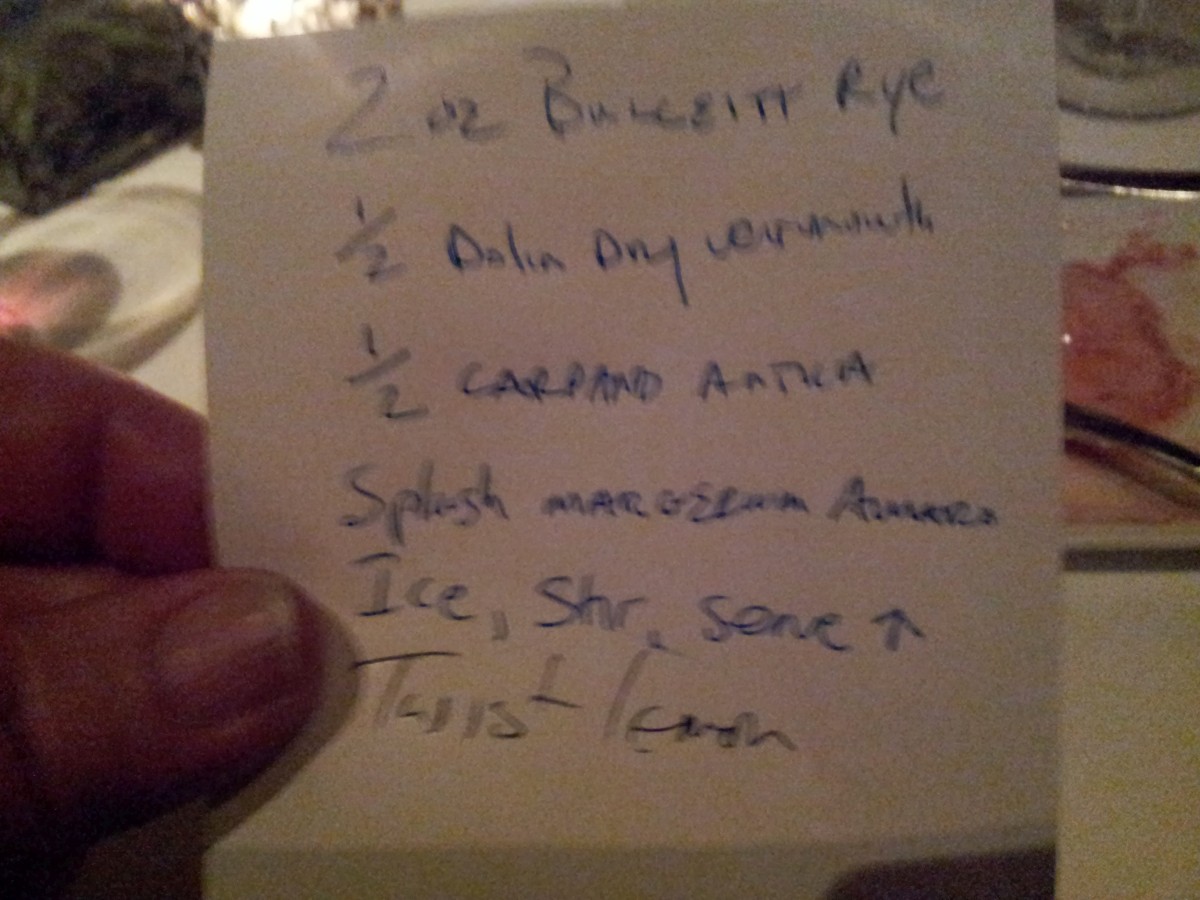 2 oz Bulleitt Rye
1/2 Dolin Dry vermouth
1/2 CARPANO ANTICA
Splash MARGERUM Amaro
Ice, Stir, Serve ↑
Twist lemon